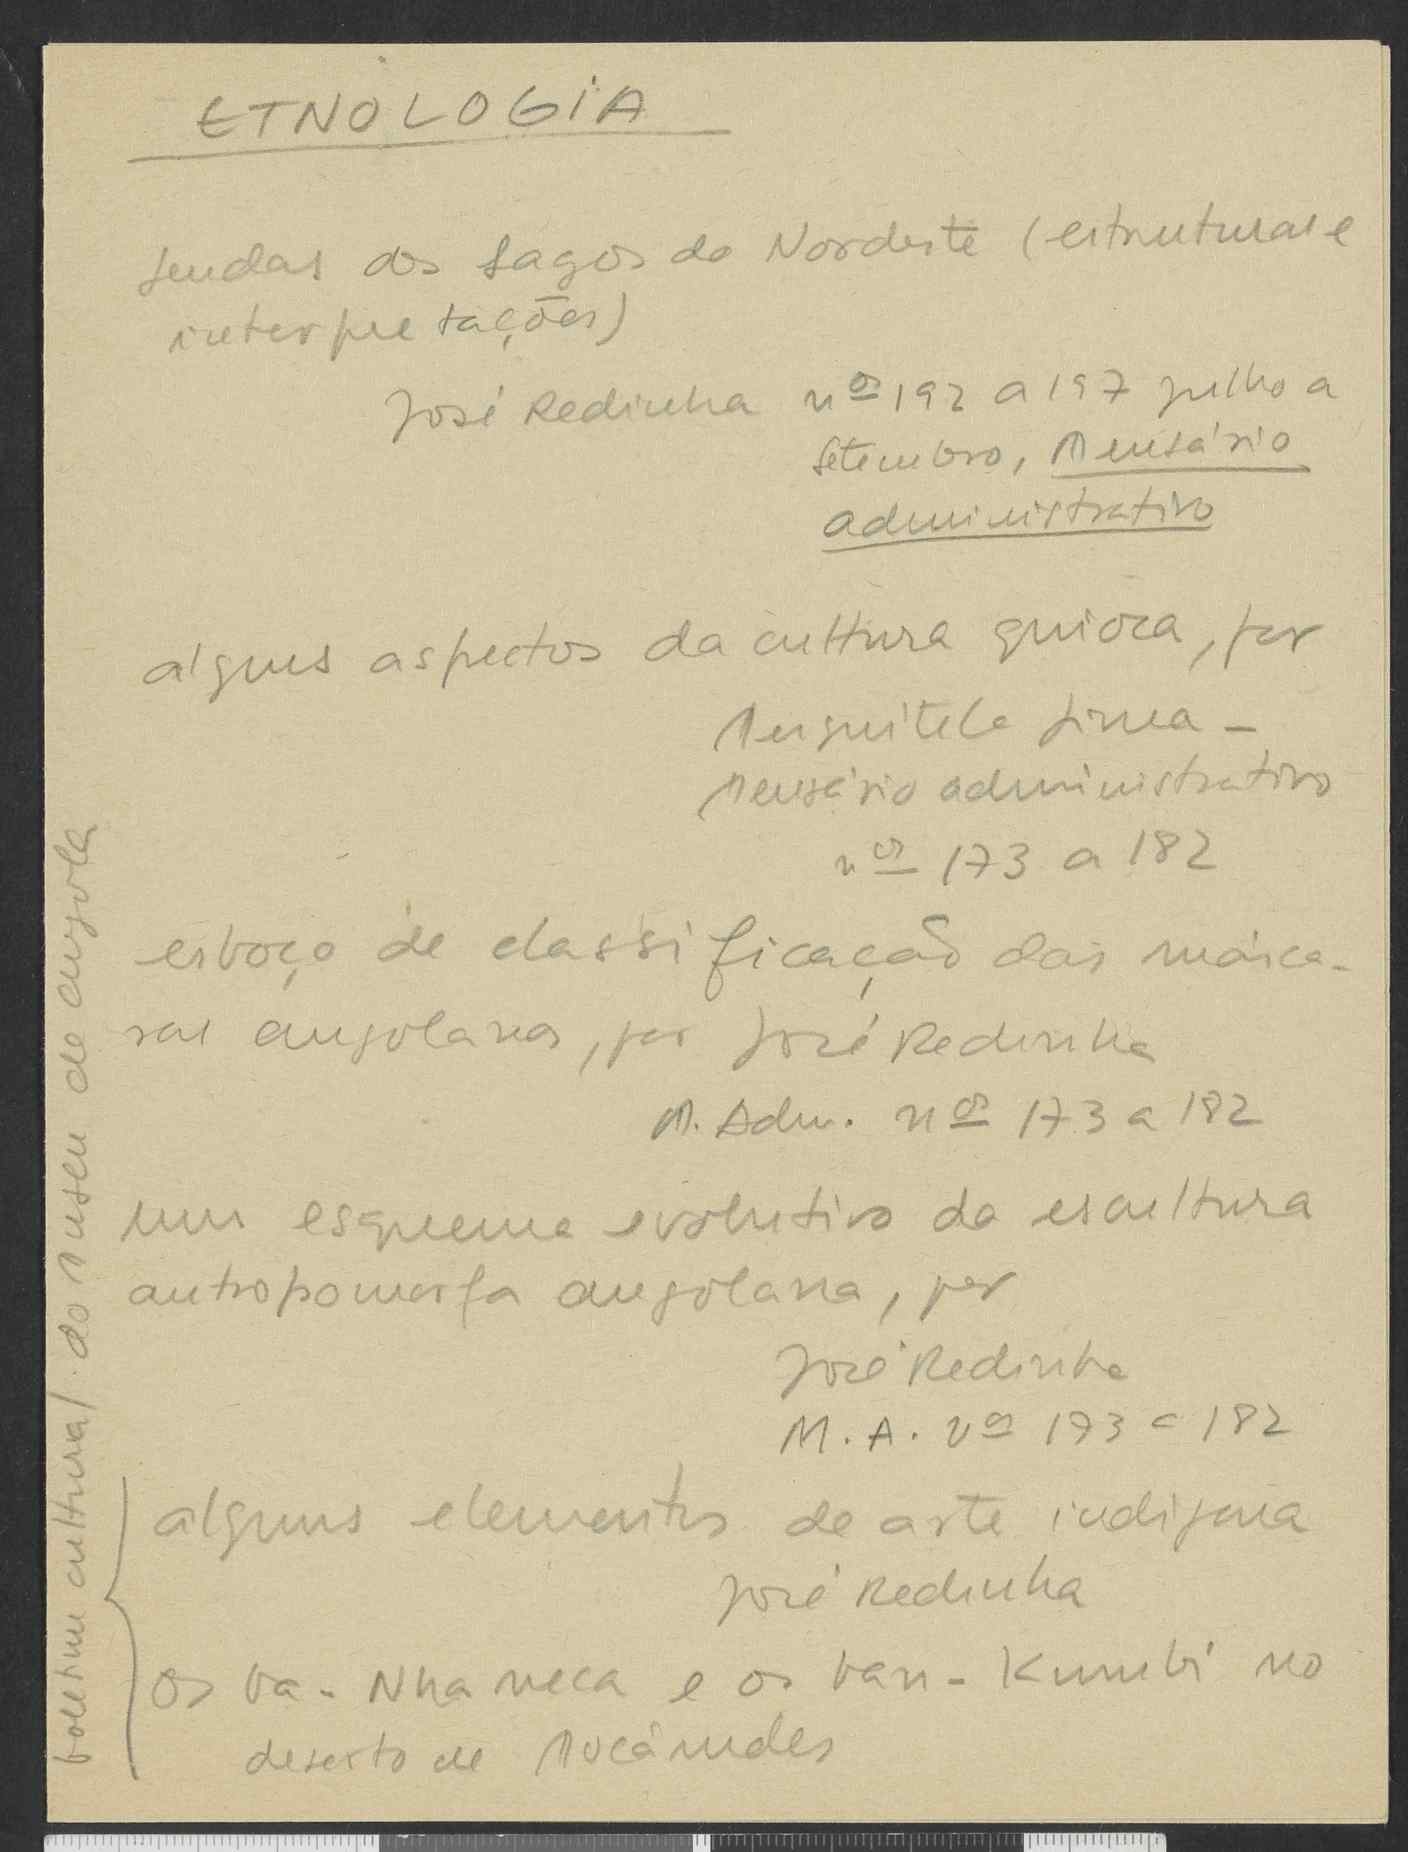 ETNOLOGIA
lendas dos lagos do Nordeste (estruturas e
interpretações)
José Redinha nos 192 a 197 julho a
Setembro, Mensário
administrativo
alguns aspectos da cultura quioca, por
Mesquitela Lima -
Mensário administrativo
nos 173 a 182
esboço de classificação das másca-
ras angolanas, por José Redinha
M. Adm. nos 173 a 182
um esquema evolutivo da escultura
antropomorfa angolana, por
José Redinha
M. A. nos 173 a 182
alguns elementos de arte indígena
José Redinha
os ba-Nhaneca e os ban-Kumbi no
deserto de Moçâmedes
boletim cultural do Museu de Angola